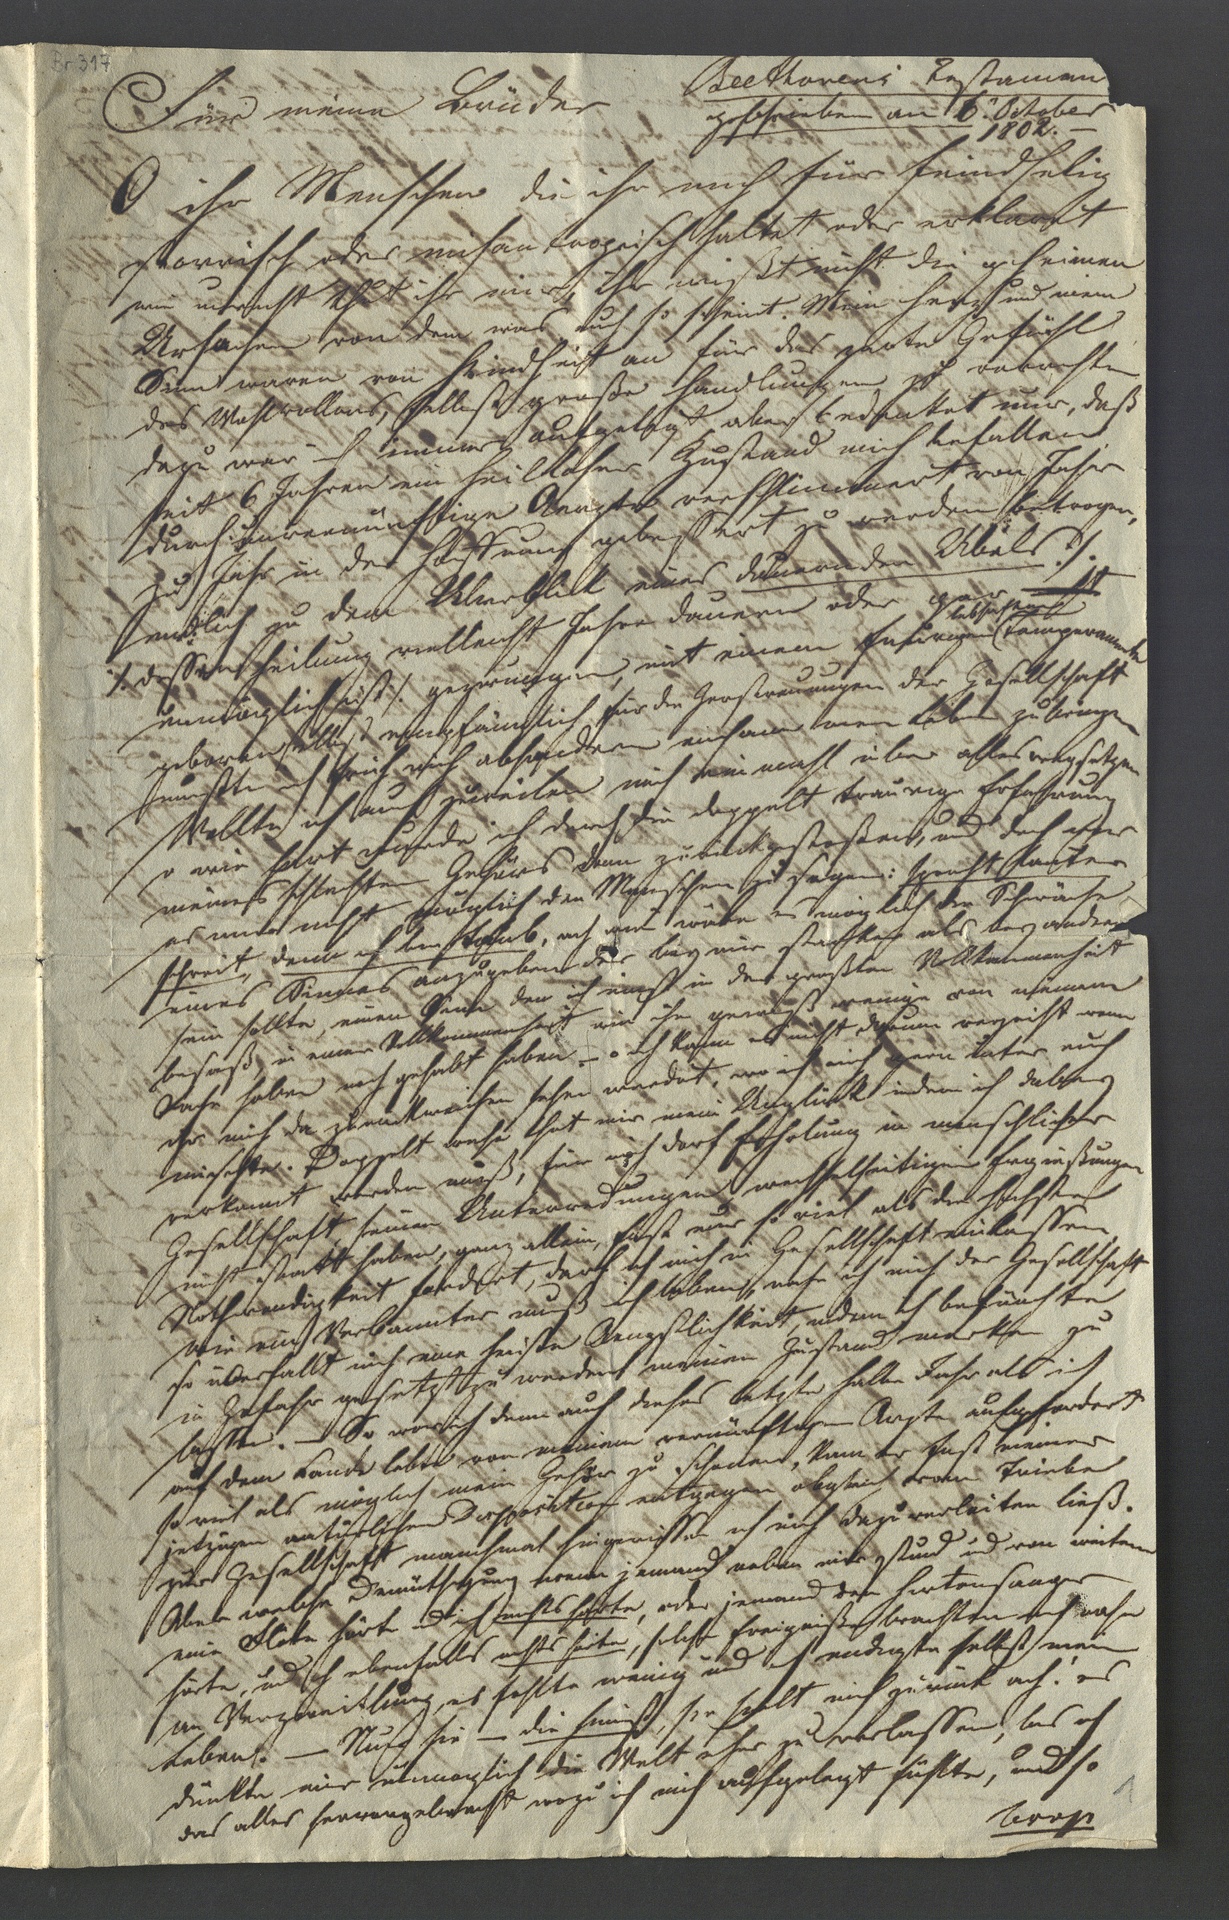 Br 317
Für meine Brüder
Beethovens Testament
geschrieben am 6. October
1802. —
O ihr Menschen die ihr mich für feindselig
störrisch oder misantropisch haltet oder erkläret
wie unrecht thut ihr mir, ihr wißt nicht die geheimen
Ursachen von dem was euch so scheint. Mein Herz und mein
Sinn waren von Kindheit an für das zarte Gefühl
des Wohlwollens, selbst große Handlungen zu verrichten
dazu war ich immer aufgelegt aber bedenket nur, daß
seit 6 Jahren ein heilloser Zustand mich befallen
durch unvernünftige Aerzte verschlimmert von Jahr
zu Jahr in der Hoffnung gebessert zu werden betrogen,
endlich zu dem Überblick eines daurenden Übels :/.
/: dessen Heilung vielleicht Jahre dauern oder gar
lebhaften
unmöglich ist /. gezwungen, mit einem feurigen Temperamente
geboren selbst empfänglich für die Zerstreuungen der Gesellschaft
mußte ich früh mich absondern einsam mein Leben zubringen
Wollte ich auch zuweilen mich einmahl über alles weg setzen
o wie hart wurde ich durch die doppelt traurige Erfahrung
meines schlechten Gehörs dann zurückgestoßen, und doch war
es mir nicht möglich den Menschen zu sagen: sprecht lauter
schreit, denn ich bin taub, ach wie wäre es möglich die Schwäche
eines Sinnes anzugeben der bey mir stärker als bey andern
sein sollte, einen Sinn den ich einst in der größten Vollkommenheit
besaß, in einer Vollkommenheit wie ihn gewiß wenige von meinem
Fache haben noch gehabt haben — o ich kann es nicht darum verzeiht wenn
ihr mich da zurückweichen sehen werdet, wo ich mich gern unter euch
mischte. Doppelt wehe thut mir mein Unglück indem ich dabey
verkannt werden muß, für mich darf Erholung in menschlicher
Gesellschaft, feinere Unterredungen, wechselseitigen Ergießungen
nicht statt haben, ganz allein, fast nur so viel als die höchste
Nothwendigkeit fordert, darf ich mich in Gesellschaft einlassen
wie ein Verbannter muß ich leben, nahe ich mich der Gesellschaft
so überfällt mich eine heiße Aengstlichkeit, indem ich befürchte
in Gefahr gesetzt zu werden meinen Zustand merken zu
lassen. — So war ich denn auch dieses letzte halbe Jahr als ich
auf dem Lande lebte von meinem vernünftigen Arzte aufgefordert
so viel als möglich mein Gehör zu schonen, kam er fast meiner
jetzigen natürlichen Disposition entgegen obgleich vom Triebe
zur Gesellschaft manchmal hingerissen ich mich dazu verleiten ließ.
Aber welche Demüthigung wenn jemand neben mir stund und von weitem
eine Flöte hörte und ich nichts hörte, oder jemand den Hirtensänger
hörte, und ich ebenfalls nichts hörte, solche Ereigniße brachten mich nahe
an Verzweiflung, es fehlte wenig und ich endigte selbst mein
Leben. — Nur sie — die Kunst, sie hielt mich zurück ach! es
dünkte mir unmöglich die Welt eher zu verlassen, bis ich
das alles hervorgebracht wozu ich mich aufgelegt fühlte, und so